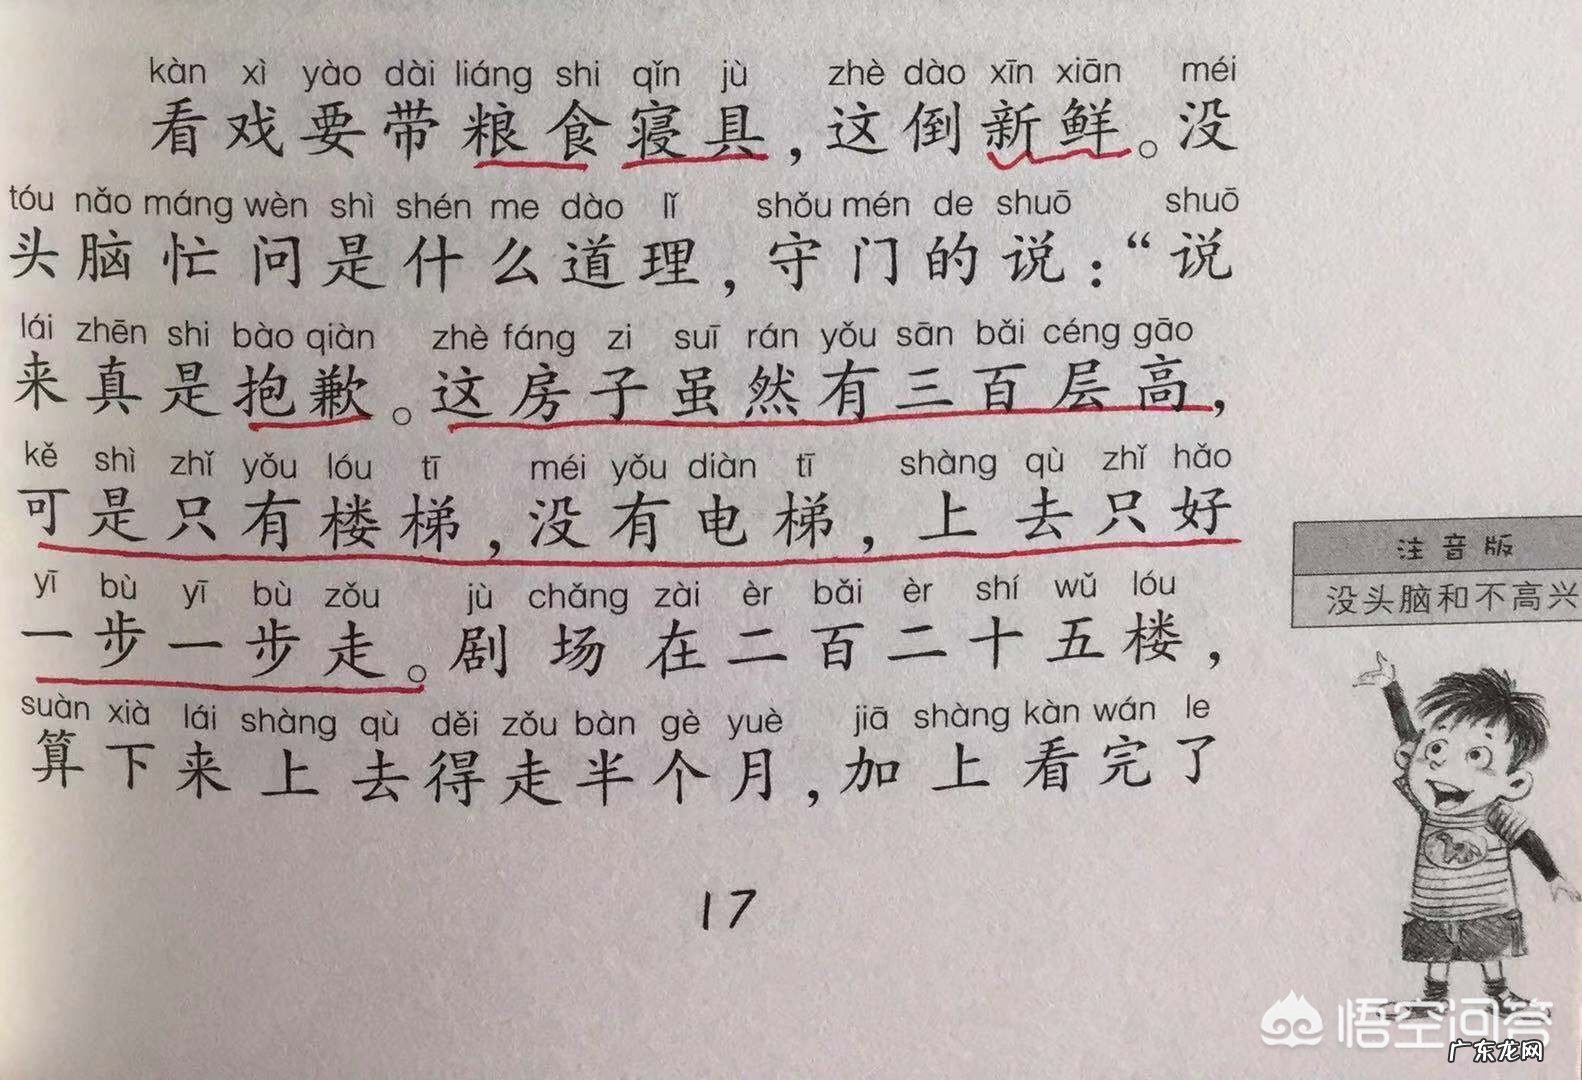 kàn xì yào dài liáng shi qǐn jù zhè dào xīn xiān méi
看戏要带粮食寝具，这倒新鲜。没
tóu nǎo máng wèn shì shén me dào lǐ shǒu mén de shuō shuō
头脑忙问是什么道理，守门的说：“说
lái zhēn shi bào qiàn zhè fáng zi suī rán yǒu sān bǎi céng gāo
来真是抱歉。这房子虽然有三百层高，
kě shì zhǐ yǒu lóu tī méi yǒu diàn tī shàng qù zhǐ hǎo
可是只有楼梯，没有电梯，上去只好
yī bù yī bù zǒu jù chǎng zài èr bǎi èr shí wǔ lóu
一步一步走。剧场在二百二十五楼，
suàn xià lái shàng qù děi zǒu bàn gè yuè jiā shàng kàn wán le
算下来上去得走半个月，加上看完了
17
注音版
没头脑和不高兴
悟空问答
广东龙网